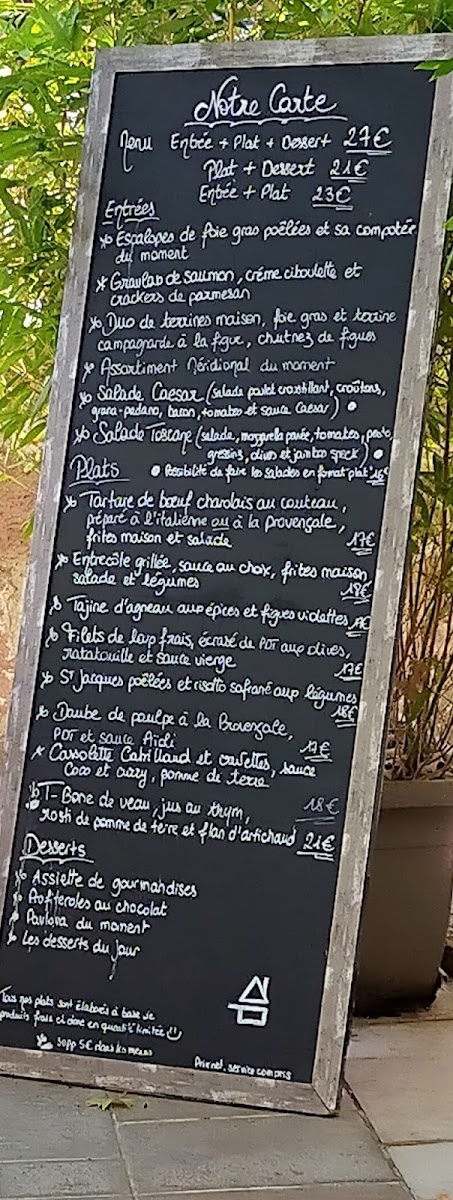 Notre Carte
Menu Entrée + Plat + Dessert 27€
Plat + Dessert 21€
Entrée + Plat 23€
Entrées
* Escalopes de foie gras poêlées et sa compotée
du moment
* Gravlab de saumon, crème ciboulette et
crackers de parmesan
* Duo de terrines maison, foie gras et terrine
campagnarde à la figue, chutnez de figues
* Assortiment Méridional du moment
* Salade Caesar (salade poulet croustillant, croûtons,
grana-padano, bacon, tomates et sauce Caesar) •
* Salade Toscane (salade, mozzarella panée, tomates, pesto,
gressins, olives et jambon speck) •
Plats • Possibilité de faire les salades en format plat 16€
* Tartare de bœuf charolais au couteau,
préparé à l'italienne ou à la provençale,
frites maison et salade 17€
* Entrecôte grillée, sauce au choix, frites maison
salade et légumes 18€
* Tajine d'agneau aux épices et figues violettes 17€
* Filets de loup frais, écrasé de PDT aux olives,
ratatouille et sauce vierge 17€
* St Jacques poêlées et risotto safrané aux légumes
18€
* Daube de poulpe à la Provençale,
PDT et sauce Aïoli 17€
* Cassolette Cabillaud et crevettes, sauce
Coco et curry, pomme de terre
18€
* T-Bone de veau, jus au thym,
rosti de pomme de terre et flan d'artichaud 21€
Desserts
* Assiette de gourmandises
* Profiteroles au chocolat
* Pavlova du moment
* Les desserts du jour
Tous nos plats sont élaborés à base de
produits frais et donc en quantité limitée
supp 5€ dans les menus
Prix net, service compris